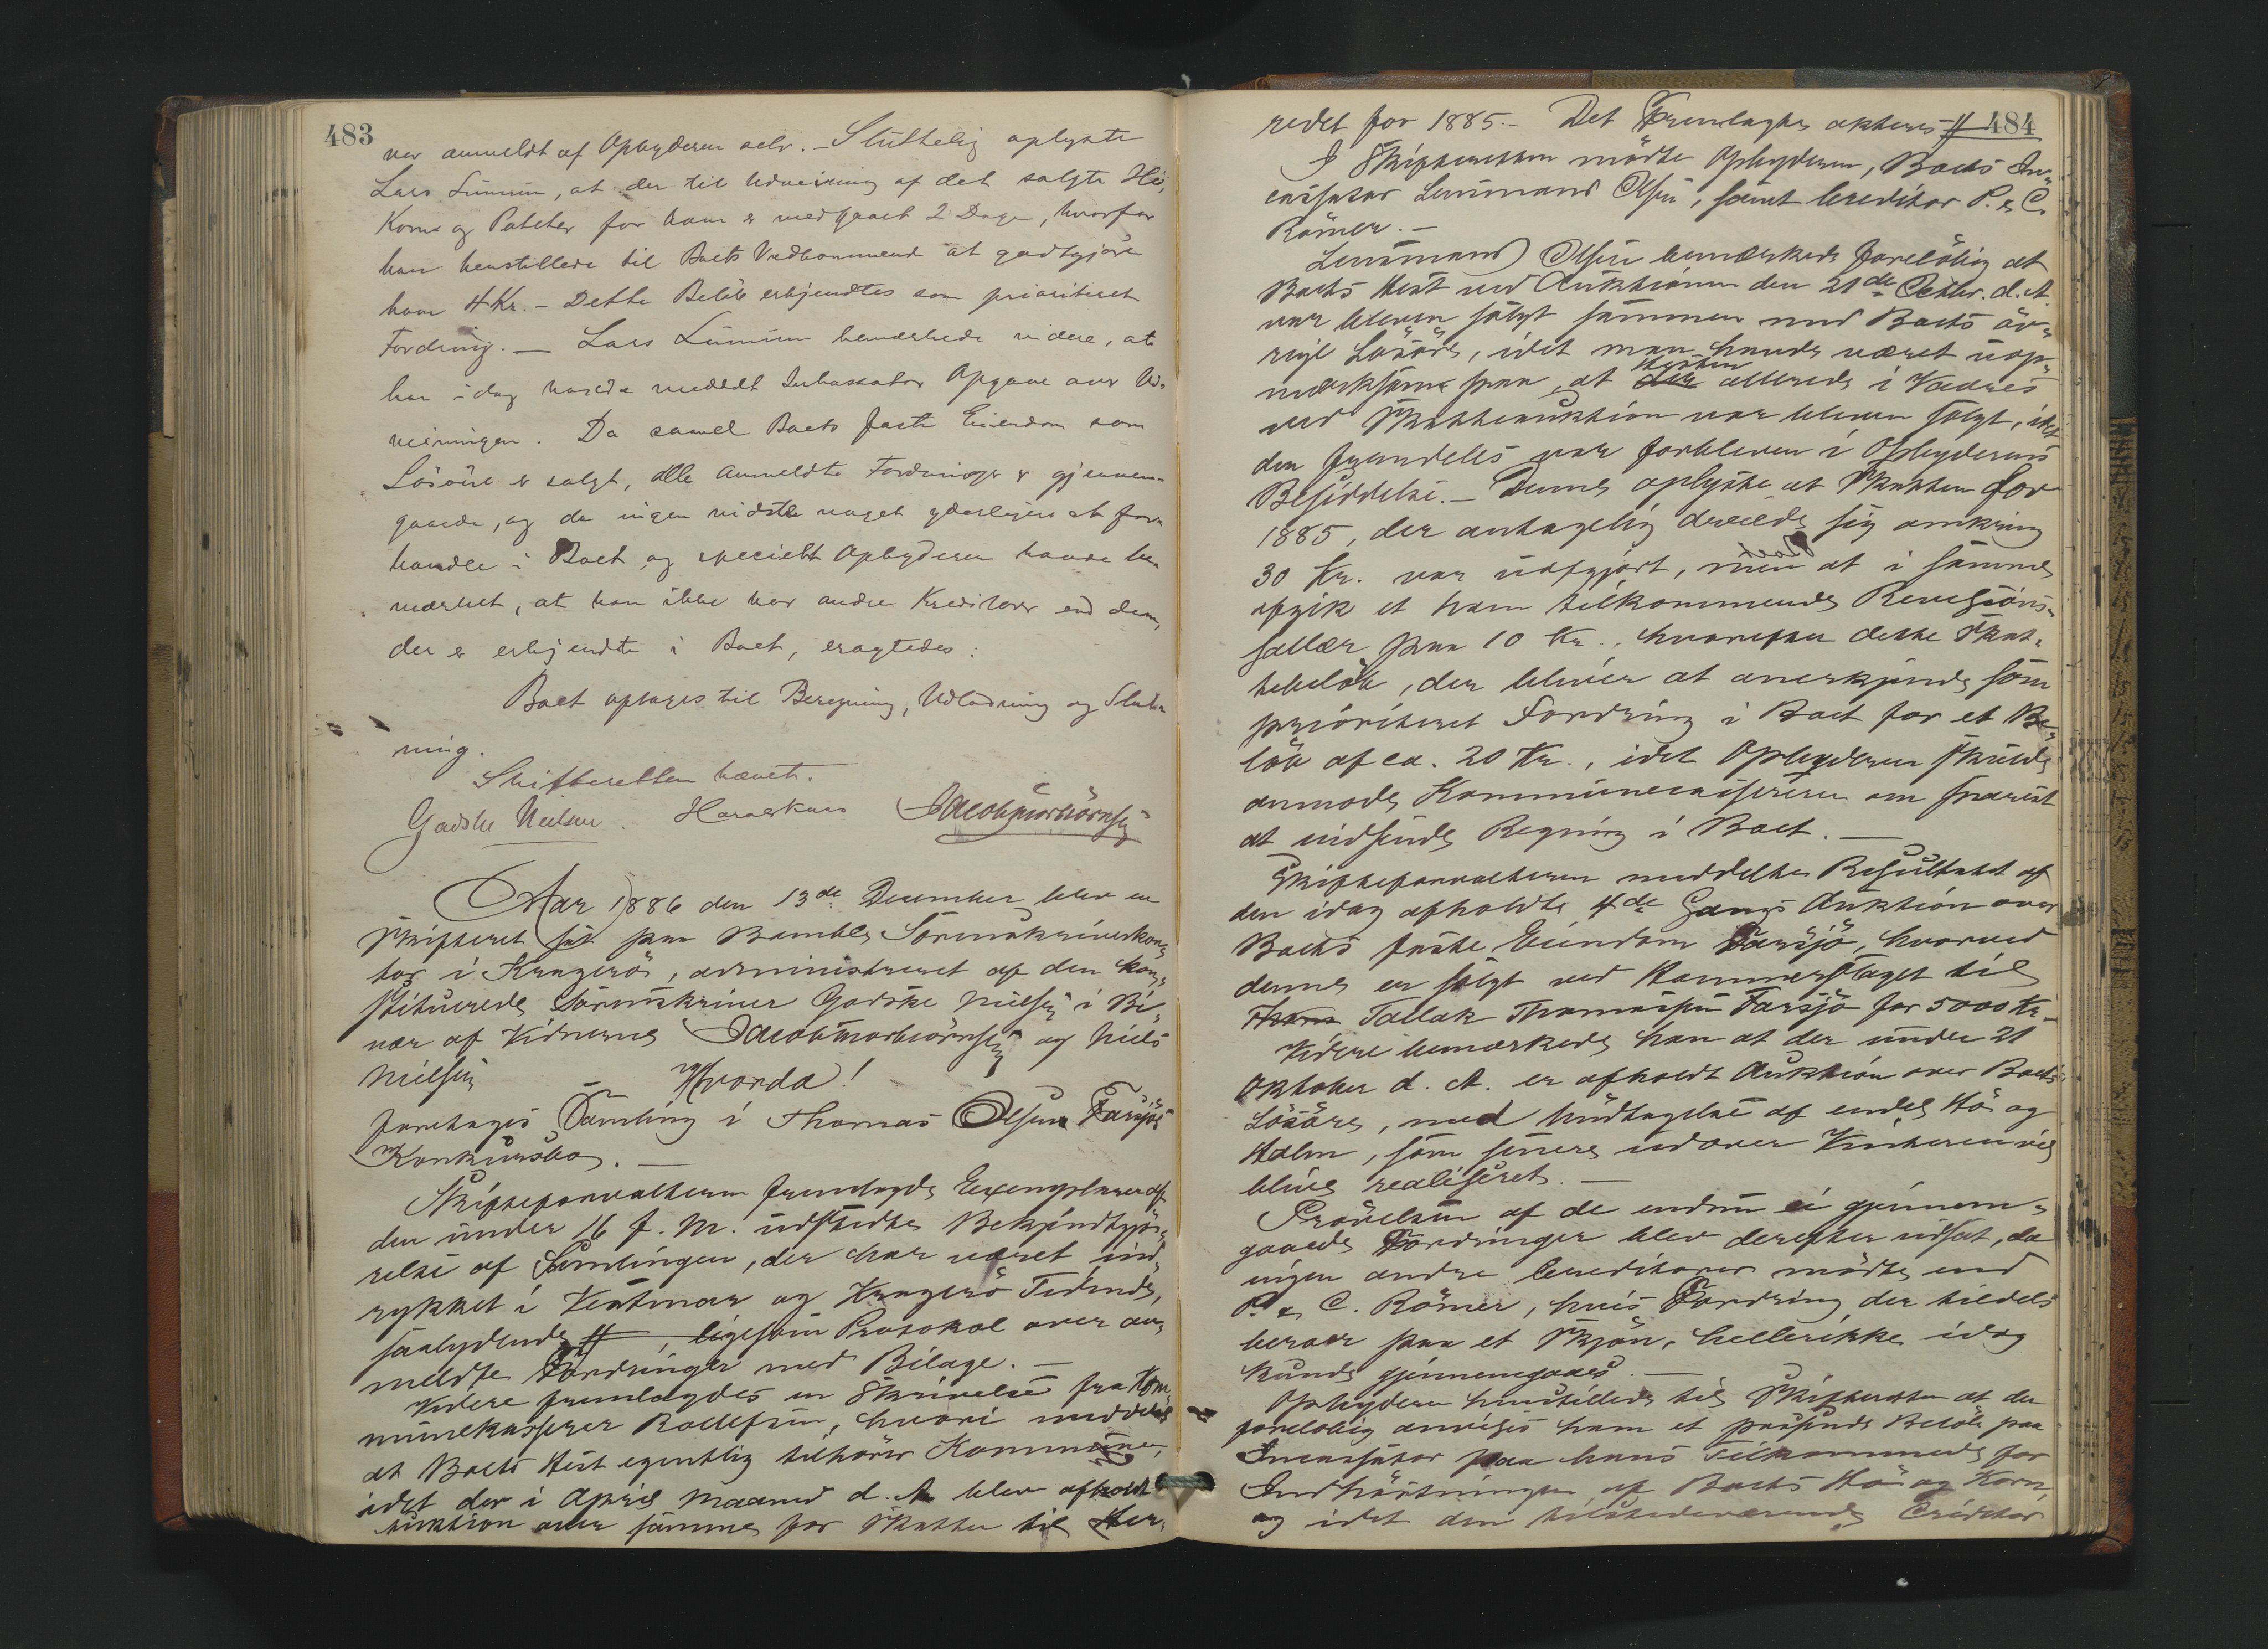 483
var anmeldt af Opbyderen selv. – Sluttelig oplyste
Lars Lunum, at der til Udveining af det solgte Hö,
Korn og Poteter for ham er medgaaet 2 Dage, hvorfor
han henstillede til Boets Vedkommende at godtgjöre
ham 4 Kr. – Dette Belöb erkjendtes som prioriteret
Fordring. – Lars Lunum bemærkede videre, at
han idag havde meddelt Inkassator Opgave over Ud-
veiningen. Da saavel Boets faste Eiendom som
Lösöre er solgt, alle anmeldte Fordringer er gjennem-
gaaede, og da ingen vidste noget yderligere at for-
handle i Boet og specielt Opbyderen havde be-
mærket, at han ikke har andre Kreditorer end dem,
der er erkjendte i Boet, eragtedes:
Boet optages til Beregning, Udlodning og Slut-
ning.
Skifteretten hævet.
Godske Nielsen. Jacob Thorbiörnsen
Aar 1886 den 13de December blev en
Skifteret sat paa Bamble Sorenskriverkon-
tor i Kragerö, administreret af den kon-
stituerede Sorenskriver Godske Nielsen i Bi-
vær af Vidnerne Jacob Thorbiörnsen og Niels
Nielsen
Hvorda!
foretages Samling i Thomas Olsen Farsjös
Konkursbo. –
Skifteforvalteren fremlagde Exemplarer af
den under 16 f. M. udstedte Bekjendtgjö-
relse af Samlingen, der har været ind-
rykket i Vestmar og Kragerö Tidende,
saalydende #, ligesom Protokol over an-
meldte Fordringer med Bilage. –
Videre fremlagdes en Skrivelse fra Kom-
munekasserer Rollefsen, hvori meddeles
at Boets Hest egentlig tilhörer Kommunen,
idet der i April Maaned d. A. blev afholdt
Auktion over samme for Skatter til Her-
484
redet for 1885. – Det Fremlagte akteres #
I Skifteretten mödte Opbyderen, Boets In-
cassator Lensmand Olsen, samt Creditor P. & C.
Römer. –
Lensmand Olsen bemærkede foreløbig at
Boets Hest ved Auktionen den 21de Octbr. d. A.
var bleven solgt sammen med Boets öv-
rige Lösöre, idet man havde været uop-
mærksom paa, at Hesten allerede i Vaares
ved Skatteauktion var bleven solgt, idet
den fremdeles var forbleven i Opbyderens
Besiddelse. – Denne oplyste at Skatten for
1885, der antagelig dreiede sig omkring
30 Kr. var uopgjort, men at i samme
afgik et ham tilkommende Revisions-
sallær paa 10 Kr., hvorefter dette Skat-
tebelöb, der bliver at anerkjende som
prioriteret Fordring i Boet for et Be-
löb af ca. 20 Kr., idet Opbyderen skulde
anmode Kommunecassereren om snarest
at indsende Regning i Boet. –
Skifteforvalteren meddelte Resultatet af
den idag afholdte 4de Gangs Auktion over
Boets faste Eiendom Farsjö, hvorved
denne er solgt ved Hammerslaget til
Tallak Thomassen Farsjö for 5000 Kr. –
Videre bemærkede han at der under 21
Oktober d. A. er afholdt Auktion over Boets
Lösöre, med Undtagelse af endel Hö og
Halm, som senere udover Vinteren vil
blive realiseret. –
Prövelsen af de endnu ei gjennem-
gaaede Fordringer blev derefter udsat, da
ingen andre Creditorer mödte end
P. & C. Römer, hvis Fordring der tildels
beroer paa et Skjön, hellerikke idag
kunde gjennemgaaes. –
Opbyderen henstillede til Skifteretten at der
foreløbig anvises ham et passende Belöb paa
Incassator paa hans Tilkommende for
Indhöstningen af Boets Hö og Korn,
og idet den tilstedeværende Creditor